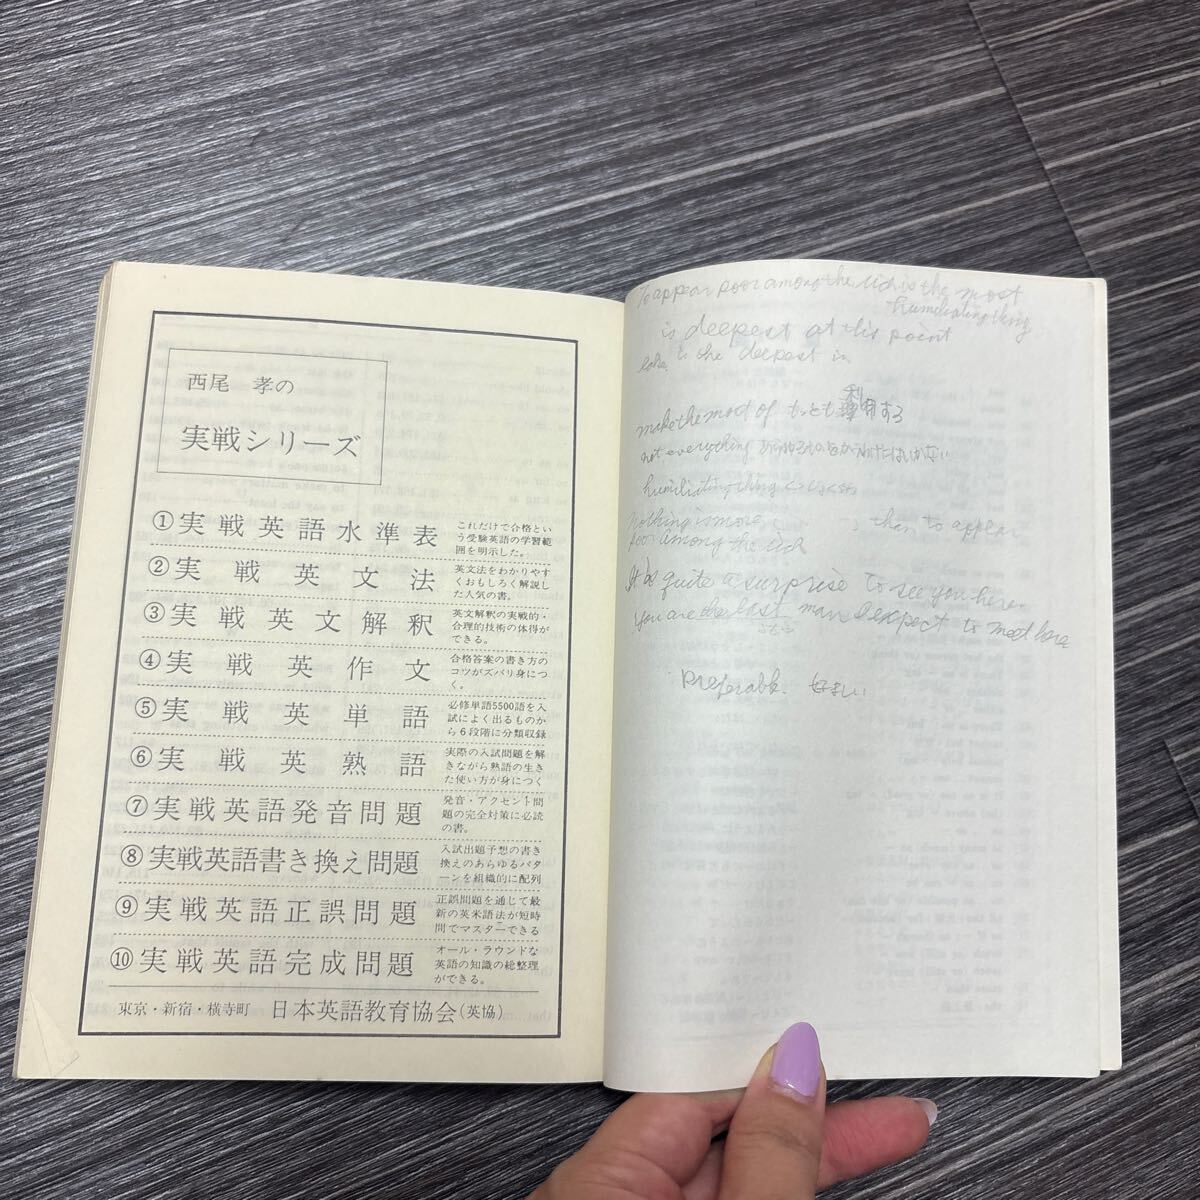 西尾 孝の
実戦シリーズ
①実戦英語水準表
これだけで合格とい
う受験英語の学習範
囲を明示した。
②実戦英文法
英文法をわかりやす
くおもしろく解説し
た人気の書。
③実戦英文解釈
英文解釈の実戦的・
合理的技術の体得が
できる。
④実戦英作文
合格答案の書き方の
コツがズバリ身につ
く。
⑤実戦英単語
必修単語5500語を入
試によく出るものか
ら6段階に分類収録
⑥実戦英熟語
実際の入試問題を解
きながら熟語の生き
た使い方が身につく
⑦実戦英語発音問題
発音・アクセント問
題の完全対策に必読
の書。
⑧実戦英語書き換え問題
入試出題予想の書き
換えのあらゆるパタ
ーンを組織的に配列
⑨実戦英語正誤問題
正誤問題を通じて最
新の英米語法が短時
間でマスターできる
⑩実戦英語完成問題
オール・ラウンドな
英語の知識の総整理
ができる。
東京・新宿・横寺町 日本英語教育協会(英協)
To appear poor among the rich is the most
humiliating thing
is deepest at this point
lake is the deepest in
make the most of もっとも利用する
not everything
humiliating thing
Nothing is more , than to appear
poor among the rich
It is quite a surprise to see you here.
You are the last man I expect to meet here
preferable 好ましい